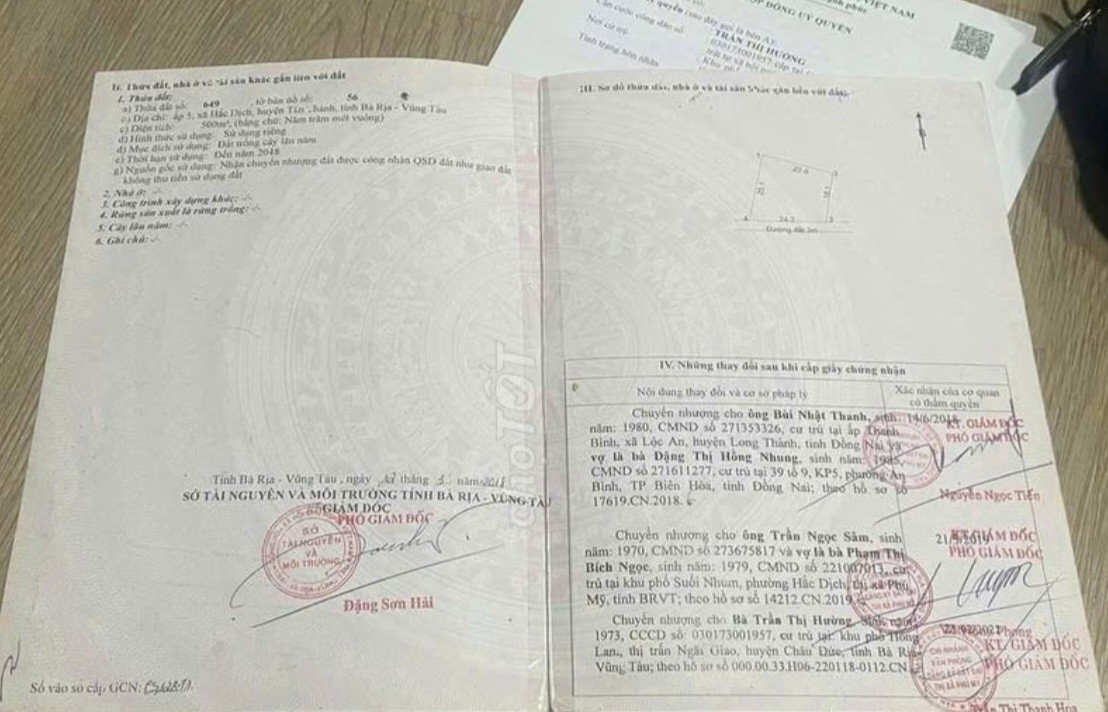 VIỆT NAM
ĐỒNG UỶ QUYỀN
quyền (sau đây gọi là bên A):
Căn cước công dân số
TRẦN THỊ HƯỜNG
030173001957 cấp tại
Nơi cư trú
Tình trạng hôn nhân
II. Thửa đất, nhà ở và tài sản khác gắn liền với đất
1. Thửa đất:
a) Thửa đất số: 649 , tờ bản đồ số: 56
b) Địa chỉ: ấp 5, xã Hắc Dịch, huyện Tân Thành, tỉnh Bà Rịa - Vũng Tàu
c) Diện tích: 500m², (bằng chữ: Năm trăm mét vuông)
d) Hình thức sử dụng: Sử dụng riêng
đ) Mục đích sử dụng: Đất trồng cây lâu năm
e) Thời hạn sử dụng: Đến năm 2048
g) Nguồn gốc sử dụng: Nhận chuyển nhượng đất được công nhận QSD đất như giao đất
không thu tiền sử dụng đất
2. Nhà ở: -/-
3. Công trình xây dựng khác: -/-
4. Rừng sản xuất là rừng trồng: -/-
5. Cây lâu năm: -/-
6. Ghi chú: -/-
Tỉnh Bà Rịa - Vũng Tàu, ngày tháng năm
SỞ TÀI NGUYÊN VÀ MÔI TRƯỜNG TỈNH BÀ RỊA - VŨNG TÀU
GIÁM ĐỐC
PHÓ GIÁM ĐỐC
SỞ
TÀI NGUYÊN
VÀ
MÔI TRƯỜNG
Đặng Sơn Hải
Số vào sổ cấp GCN:
III. Sơ đồ thửa đất, nhà ở và tài sản khác gắn liền với đất
22.6
24.2
Đường đất 3m
chợTỐT
IV. Những thay đổi sau khi cấp giấy chứng nhận
Nội dung thay đổi và cơ sở pháp lý
Xác nhận của cơ quan
có thẩm quyền
Chuyển nhượng cho ông Bùi Nhật Thanh, sinh
năm: 1980, CMND số 271353326, cư trú tại ấp Thanh
Bình, xã Lộc An, huyện Long Thành, tỉnh Đồng Nai và
vợ là bà Đặng Thị Hồng Nhung, sinh năm: 1985,
CMND số 271611277, cư trú tại 39 tổ 9, KP5, phường An
Bình, TP Biên Hòa, tỉnh Đồng Nai; theo hồ sơ số
17619.CN.2018.
14/6/2018
KT. GIÁM ĐỐC
PHÓ GIÁM ĐỐC
Nguyễn Ngọc Tiến
Chuyển nhượng cho ông Trần Ngọc Sâm, sinh
năm: 1970, CMND số 273675817 và vợ là bà Phạm Thị
Bích Ngọc, sinh năm: 1979, CMND số 221007013, cư
trú tại khu phố Suối Nhum, phường Hắc Dịch, thị xã Phú
Mỹ, tỉnh BRVT; theo hồ sơ số 14212.CN.2019.
KT. GIÁM ĐỐC
PHÓ GIÁM ĐỐC
Chuyển nhượng cho Bà Trần Thị Hường, sinh năm
1973, CCCD số: 030173001957, cư trú tại: khu phố Hồng
Lan,, thị trấn Ngãi Giao, huyện Châu Đức, tỉnh Bà Rịa
Vũng Tàu; theo hồ sơ số 000.00.33.H06-220118-0112.CN
KT. GIÁM ĐỐC
PHÓ GIÁM ĐỐC
CHI NHÁNH
VĂN PHÒNG
ĐĂNG KÝ ĐẤT ĐAI
THỊ XÃ PHÚ MỸ
Trần Thị Thanh Hoa